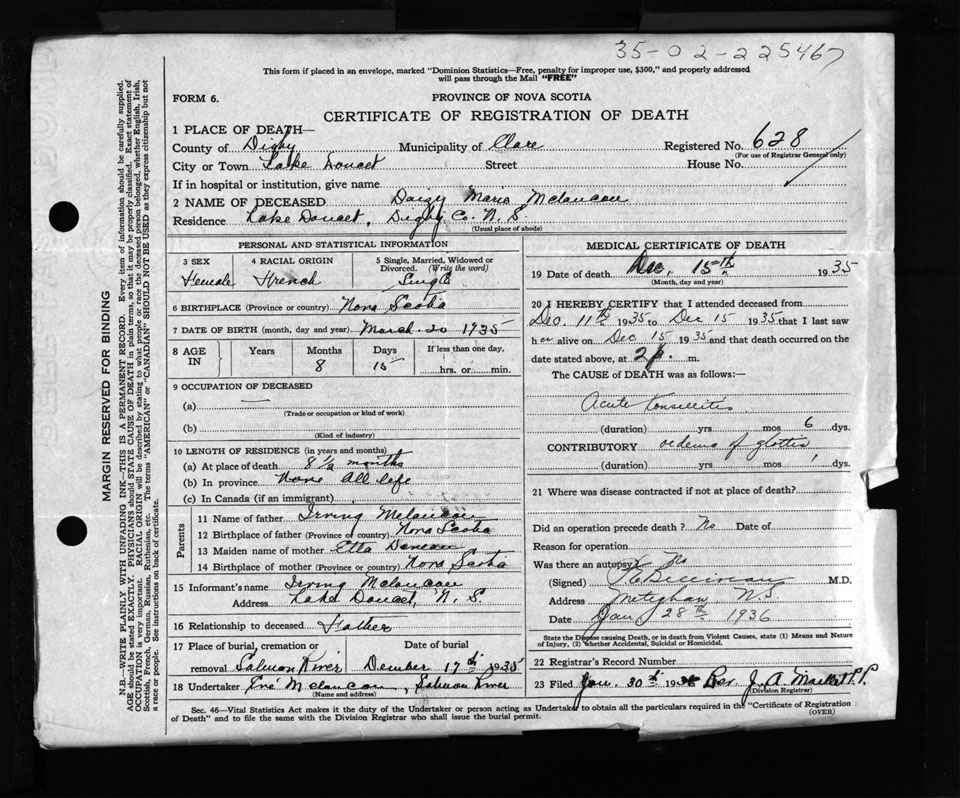 35-02-225467
This form if placed in an envelope, marked "Dominion Statistics—Free, penalty for improper use, $300," and properly addressed
will pass through the Mail "FREE"
FORM 6.
PROVINCE OF NOVA SCOTIA
CERTIFICATE OF REGISTRATION OF DEATH
1 PLACE OF DEATH—
County of Digby Municipality of Clare Registered No. 628
(For use of Registrar General only)
City or Town Lake Doucet Street House No.
If in hospital or institution, give name
2 NAME OF DECEASED Daizy Maria Melancon
Residence Lake Doucet, Digby Co. N.S.
(Usual place of abode)
PERSONAL AND STATISTICAL INFORMATION
3 SEX 4 RACIAL ORIGIN 5 Single, Married, Widowed or
Divorced. (Write the word)
Female French Single
6 BIRTHPLACE (Province or country) Nova Scotia
7 DATE OF BIRTH (month, day and year) March 20 1935
8 AGE IN Years Months Days If less than one day,
8 15 hrs. or min.
9 OCCUPATION OF DECEASED
(a) —
(Trade or occupation or kind of work)
(b)
(Kind of industry)
10 LENGTH OF RESIDENCE (in years and months)
(a) At place of death 8 1/2 months
(b) In province All life
(c) In Canada (if an immigrant)
Parents
11 Name of father Irving Melancon
12 Birthplace of father (Province or country) Nova Scotia
13 Maiden name of mother Etta
14 Birthplace of mother (Province or country) Nova Scotia
15 Informant's name Irving Melancon
Address Lake Doucet, N. S.
16 Relationship to deceased Father
17 Place of burial, cremation or Date of burial
removal Salmon River Dember 17th 1935
18 Undertaker Melancon, Salmon River
(Name and address)
MEDICAL CERTIFICATE OF DEATH
19 Date of death Dec, 15th 1935
(Month, day and year)
20 I HEREBY CERTIFY that I attended deceased from
Dec. 11th 1935 to Dec 15 1935 that I last saw
her alive on Dec 15 1935 and that death occurred on the
date stated above, at 2 m.
The CAUSE of DEATH was as follows:—
Acute Tonsillitis
(duration) yrs mos 6 dys.
CONTRIBUTORY oedema of glottis
(duration) yrs mos 1 dys.
21 Where was disease contracted if not at place of death?
Did an operation precede death? No Date of
Reason for operation
Was there an autopsy? No
(Signed) M.D.
Address Meteghan N.S
Date Jan 28th 1936
State the Disease causing Death, or in death from Violent Causes, state (1) Means and Nature
of Injury, (2) whether Accidental, Suicidal or Homicidal.
22 Registrar's Record Number
23 Filed Jan. 30th 1936 Rev. J. A. P.P.
(Division Registrar)
Sec. 46—Vital Statistics Act makes it duty of the Undertaker or person acting as Undertaker to obtain all the particulars required in the "Certificate of Registration
of Death" and to file the same with the Division Registrar who shall issue the burial permit.
(OVER)
MARGIN RESERVED FOR BINDING
N.B.—WRITE PLAINLY WITH UNFADING INK—THIS IS A PERMANENT RECORD. Every item of information should be carefully supplied.
AGE should be stated EXACTLY. PHYSICIANS should STATE CAUSE OF DEATH in plain terms, so that it may be properly classified. Exact statement of
OCCUPATION is very important. RACIAL ORIGIN will be described by stating to what people or race the deceased person belonged, whether English, Irish,
Scottish, French, German, Russian, Ruthenian, etc. The terms "AMERICAN" or "CANADIAN" SHOULD NOT BE USED as they express citizenship but not
a race or people. See instructions on back of certificate.